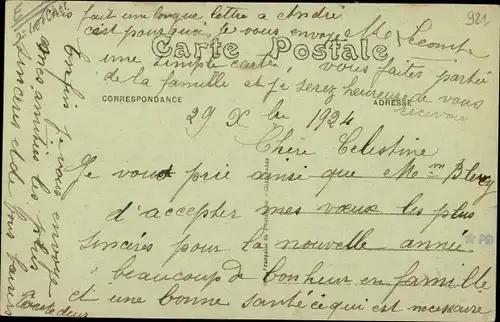 921
fait une longue lettre a André
c'est pourquoi je vous envoy
une simple carte
Carte Postale
Mme Lecomte
vous faites partie
de la famille et je serez heureuse de vous
recevoir
CORRESPONDANCE
ADRESSE
29 Xbre 1924
Chère Celestine
Je vous prie ainsi que Mr
d'accepter mes vœux les plus
sincères pour la nouvelle année
beaucoup de bonheur en famille
et une bonne santé ce qui est necessaire
a toute deux
Enfin je vous envoye
mes amitiés les plus
sincères et de tous
PD